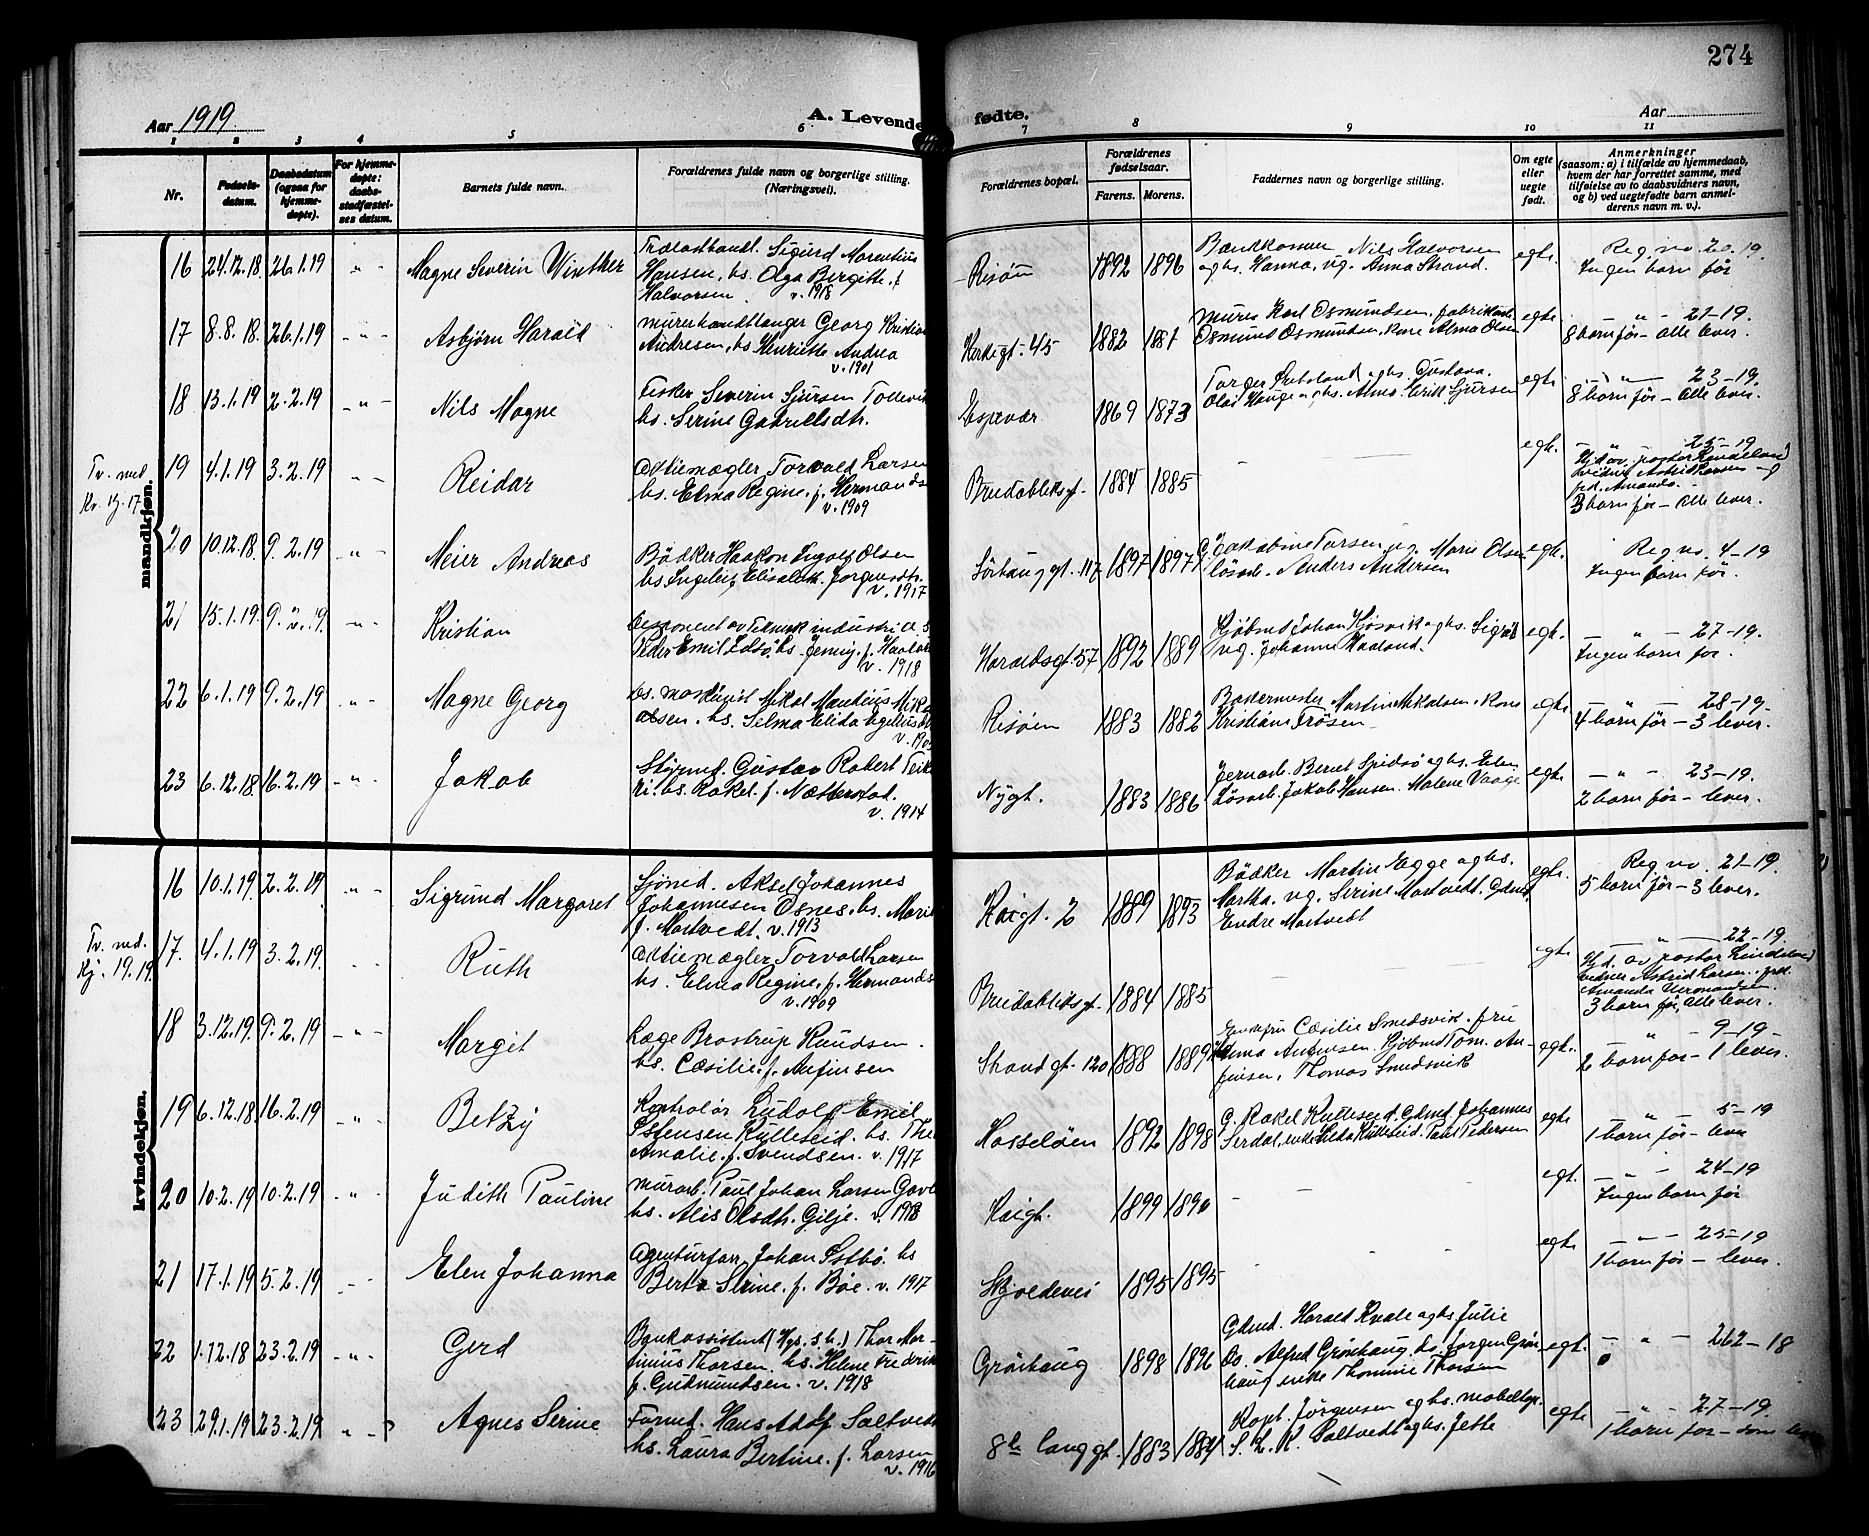 274
Aar 1919.
A. Levende fødte.
Aar
1 2 3 4 5 6 7 8 9 10 11
Nr.
Fødsels-
datum.
Daabsdatum
(ogsaa for
hjemme-
døpte).
For hjemme-
døpte:
daabs-
stadfæstel-
ses datum.
Barnets fulde navn.
Forældrenes fulde navn og borgerlige stilling.
(Næringsvei).
Forældrenes bopæl.
Forældrenes
fødselsaar.
Farens. Morens.
Faddernes navn og borgerlige stilling.
Om egte
eller
uegte
født.
Anmerkninger
(saasom: a) i tilfælde av hjemmedaab,
hvem der har forrettet samme, med
tilføielse av to daabsvidners navn,
og b) ved uegtefødte barn anmel-
derens navn m. v.).
mandkjøn.
16 24.12.18 26.1.19 " Magne Severin Winther
Trælasthandl. Sigurd
Hansen, hs. Olga Bergitte, f.
Halvorsen. v. 1918
Risöen 1892 1896
Nils Halvorsen
oghs. Hanna, ug. Anna Strand.
egte. Reg. no. 20.19.
Ingen barn för
17 8.8.18. 26.1.19 - " - Asbjörn Harald
Murerhandtlanger Georg Kristian
Andresen, hs. Henriette Andrea
v. 1901
Kirkegt. 45 1882 1881
Murer Karl Osmundsen, fabrikarb.
Osmund Osmundsen, kone Alma Olsen
egte - " - 21-19.
8 barn för - alle lever.
18 13.1.19 2.2.19 - " - Nils Magne
Fisker Severin Sjursen
hs. Serine Gabrielsdtr.
Espevær 1869 1873
Torger oghs. Gustava.
Olai Hauge oghs. Erik Sjursen
egte. - " - 23-19.
8 barn för - alle lever.
Tv. med
Kv. kj. 17
19 4.1.19 3.2.19 " Reidar
Aktiemægler Torvald Larsen
hs. Elma Regine, f. Hermands
v. 1909
Brudabliksgt. 1884 1885
egte. 25-19
Hjd. av pastor Lindeland
Astrid Larsen og
frk. Amanda.
3 barn för - alle lever.
20 10.12.18. 9.2.19 - " - Meier Andreas
Bödker Haakon Ingolf Olsen
hs. Ingeleif Elisabeth Jörgensdtr.
v. 1917
Sörhauggt. 117 1897 1897
ug. Marie Olsen
lösarb. Anders Andersen
egte. Reg. no. 4-19
Ingen barn för.
21 15.1.19. 9.2.19. - " - Kristian
Disponent av Teknisk industri
Peder Emil hs. Jenny, f. Haaland
v. 1918
Haraldsgt. 57 1892 1889
Kjöbmd Johan oghs. Sigrid
ug. Johanne Haaland.
egte. - " - 27-19.
Ingen barn för.
22 6.1.19 9.2.19 - " - Magne Georg
ds. maskinist Mikal Mandius Mikal
alsen. hs. Selma Elida
Risöen 1883 1882
Bakermester Martin Mikalsen, kone
Kristiane Frösen
egte - " - 28-19.
4 barn för - 3 lever.
23 6.12.18. 16.2.19 - " - Jakob
Styrmd. Gustav Robert
hs. Rakel. f. Nætterstad.
v. 1914
Nygt. 1883 1886
Jernarb. Bernt Spidsö oghs. Elen
Lösarb. Jakob Hansen. Malene Vaage
egte. - " - 23-19.
2 barn för - lever.
kvindekjøn.
16 10.1.19. 2.2.19 - " - Sigrund Margaret
Sjömd. Aksel Johannes
Johannesen Osnes. hs. Marie
f. Mortvedt. v. 1913
Kaigt. 2 1889 1893
Bödker Martin Egge oghs.
Martha. ug. Serine Mortvedt. Gdmd.
Endre Mortvedt
egte. Reg. no. 21-19.
5 barn för - 3 lever.
Tv. med.
Kj. 19.19.
17. 4.1.19 3.2.19. Ruth
Aktiemægler Torvald Larsen
hs. Elma Regine, f. Hermands
v. 1909
Brudabliksgt. 1884 1885
egte. " 22-19.
Hjd. av pastor Lindeland
vidner Astrid Larsen, frk.
Amanda Hermandsen.
3 barn för, alle lever.
18 3.12.19. 9.2.19 - " - Margit
Læge Brostrup Knudsen.
hs. Cæsilie, f. Anfinsen
Strandgt. 120 1888 1889
Cæsilie Smedsvik. fru
Anfinsen. Kjöbmd Tom. An-
finsen, Thomas Smedsvik
egte. " - 9-19-
2 barn för - 1 lever.
19 6.12.18 16.2.19 - " - Betzy
Kontrolör Ludolf Emil
Stensen Kulleseid. hs. Thea
Amalie, f. Svendsen. v. 1917
Hasselöen 1892 1898
G. Rakel Kulleseid. Gdmd. Johannes
Serdal, enke Hilda Kulleseid. Paul Pedersen
egte - " - 5-19
1 barn för - lever
20 10.2.19 10.2.19 - " - Judith Pauline
Murarb. Paul Johan Larsen
hs. Alis Olsdtr. Gilje. v. 1918
Kaigt. 1899 1890
egte. - " - 24-19
Ingen barn för
21 17.1.19 5.2.19 Elen Johanna
Agenturforr. Johan Östbö. hs
Berta Serine, f. Böe. v. 1917
Skjoldevei 1895 1895
egte - " - 25-19
1 barn för - lever.
22 1.12.18 23.2.19 - " - Gerd
Bankassistent (Hgs. s.b.) Thor Mar-
tinius Thorsen. hs. Helene Fredrik
f. Gudmundsen. v. 1918
Grönhaug 1898 1896
Gdmd. Harald Kvale oghs. Julie
Do. Alfred Grönhaug. Do. Jörgen Grön-
haug enke Thomine Thorsen
egte. - " - 262-18
0
23 29.1.19 23.2.19 " - Agnes Serine
Formd. Hans Adolf Saltvedt
hs. Laura Bertine, f. Larsen
v. 1916
8de langgt. 1883 1884
Kapt. Jörgensen oghs.
S. L. K. Saltvedt oghs. Jette
egte - " - 27-19.
1 barn för - som